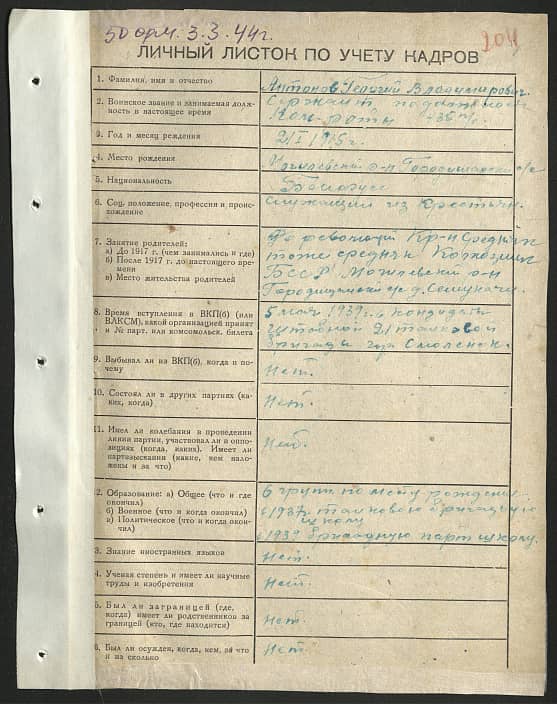 50 орм. 3.3.44г.
204
ЛИЧНЫЙ ЛИСТОК ПО УЧЕТУ КАДРОВ
1. Фамилия, имя и отчество
Антонов Георгий Владимирович.
2. Воинское звание и занимаемая долж-
ность в настоящее время
Сержант
роты
3. Год и месяц рождения
1915г.
4. Место рождения
Могилевский р-н Городищенский с/с
5. Национальность
Белорус
6. Соц. положение, профессия и проис-
хождение
Служащий из Крестьян.
7. Занятие родителей:
а) До 1917 г. (чем занимались и где)
б) После 1917 г. до настоящего вре-
мени
в) Место жительства родителей
До революции Кр-н Средняк
тоже средняк Колхозник
БССР Могилевский р-н
д. Семукачи.
8. Время вступления в ВКП(б) (или
ВЛКСМ), какой организацией принят
и № парт. или комсомольск. билета
5 мая 1939г. кандидат
21 танковой
бригады гор Смоленск.
9. Выбывал ли из ВКП(б), когда и по-
чему
Нет.
10. Состоял ли в других партиях (ка-
ких, когда)
Нет.
11. Имел ли колебания в проведении
линии партии, участвовал ли в оппо-
зициях (когда, каких). Имеет ли
партвзыскания (какие, кем нало-
жены и за что)
Нет.
2. Образование: а) Общее (что и где
окончил)
б) Военное (что и когда окончил)
в) Политическое (что и когда окон-
чил)
6 групп по месту рождения.
в 1937г. танковую бригадную
школу
в 1939 бригадную парт школу.
3. Знание иностранных языков
Нет.
4. Ученая степень и имеет ли научные
труды и изобретения
Нет.
5. Был ли заграницей (где,
когда) имеет ли родственников за
границей (кто, где находится)
Нет.
6. Был ли осужден, когда, кем, за что
и на сколько
Нет.